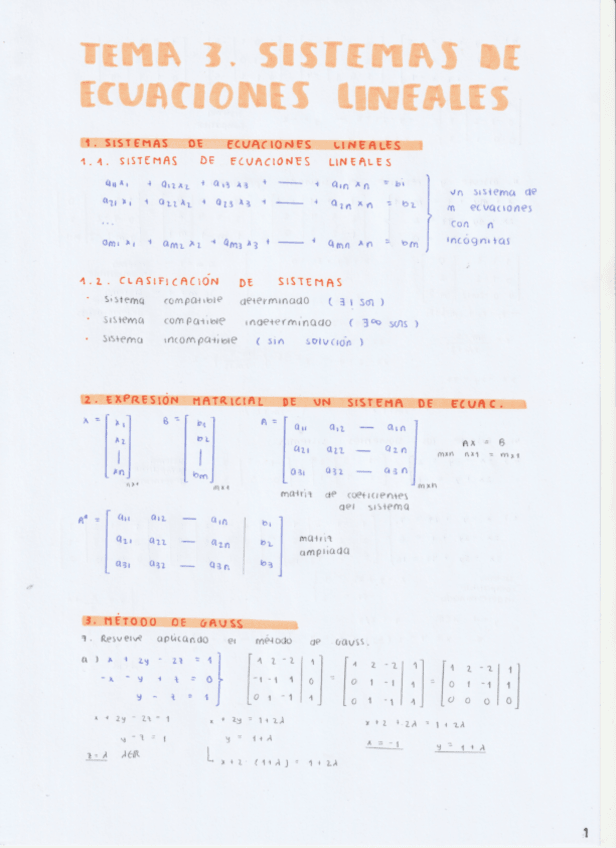 TEMA 3. SISTEMAS DE
ECUACIONES LINEALES
1. SISTEMAS DE ECUACIONES LINEALES
1.1. SISTEMAS DE ECUACIONES LINEALES
a11 x1 + a12 x2 + a13 x3 + — + a1n xn = b1
a21 x1 + a22 x2 + a23 x3 + — + a2n xn = b2
...
am1 x1 + am2 x2 + am3 x3 + — + amn xn = bm
un sistema de
m ecuaciones
con n
incógnitas
1.2. CLASIFICACIÓN DE SISTEMAS
· Sistema compatible determinado (∃1 sol)
· Sistema compatible indeterminado (∃∞ sols)
· Sistema incompatible (sin solución)
2. EXPRESIÓN MATRICIAL DE UN SISTEMA DE ECUAC.
X = [ x1 x2 | xn ] nx1
B = [ b1 b2 | bm ] mx1
A = [ a11 a12 — a1n
a21 a22 — a2n
a31 a32 — a3n ] mxn
AX = B
mxn nx1 = mx1
matriz de coeficientes
del sistema
A* = [ a11 a12 — a1n | b1
a21 a22 — a2n | b2
a31 a32 — a3n | b3 ]
matriz
ampliada
3. MÉTODO DE GAUSS
7. Resuelve aplicando el método de Gauss.
a) x + 2y - 2z = 1
-x - y + z = 0
y - z = 1
[ 1 2 -2 | 1
-1 -1 1 | 0
0 1 -1 | 1 ]
=
[ 1 2 -2 | 1
0 1 -1 | 1
0 1 -1 | 1 ]
=
[ 1 2 -2 | 1
0 1 -1 | 1
0 0 0 | 0 ]
x + 2y - 2z = 1
y - z = 1
z = λ λ∈R
x + 2y = 1 + 2λ
y = 1 + λ
x + 2 · (1 + λ) = 1 + 2λ
x + 2 + 2λ = 1 + 2λ
x = -1 y = 1 + λ
1